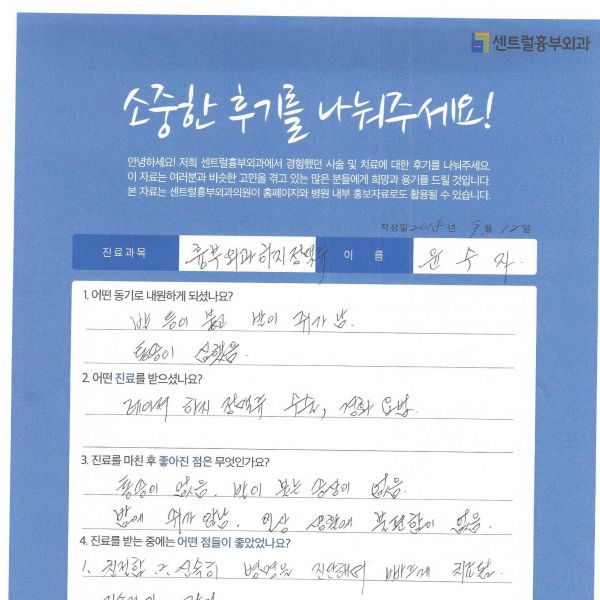 센트럴흉부외과
소중한 후기를 나눠주세요!
안녕하세요! 저희 센트럴흉부외과에서 경험했던 시술 및 치료에 대한 후기를 나눠주세요
이 자료는 여러분과 비슷한 고민을 겪고 있는 많은 분들에게 희망과 용기를 드릴 것입니다.
본 자료는 센트럴흉부외과의원이 홈페이지와 병원 내부 홍보자료로도 활용될 수 있습니다.
작성일 2018 년 9 월 12 일
진료과목 흉부외과 하지정맥류 이 름 윤수자
1. 어떤 동기로 내원하게 되셨나요?
발 등이 붓고 발이 쥐가 남.
통증이 심했음.
2. 어떤 진료를 받으셨나요?
레이저 하지 정맥류 수술, 경화 요법
3. 진료를 마친 후 좋아진 점은 무엇인가요?
통증이 없음. 발이 붓는 증상이 없음.
밤에 쥐가 안남. 일상 생활에 불편함이 없음.
4. 진료를 받는 중에는 어떤 점들이 좋았었나요?
1. 친절함 2. 신속히 병명을 진단해서 빠르게 치료됨.